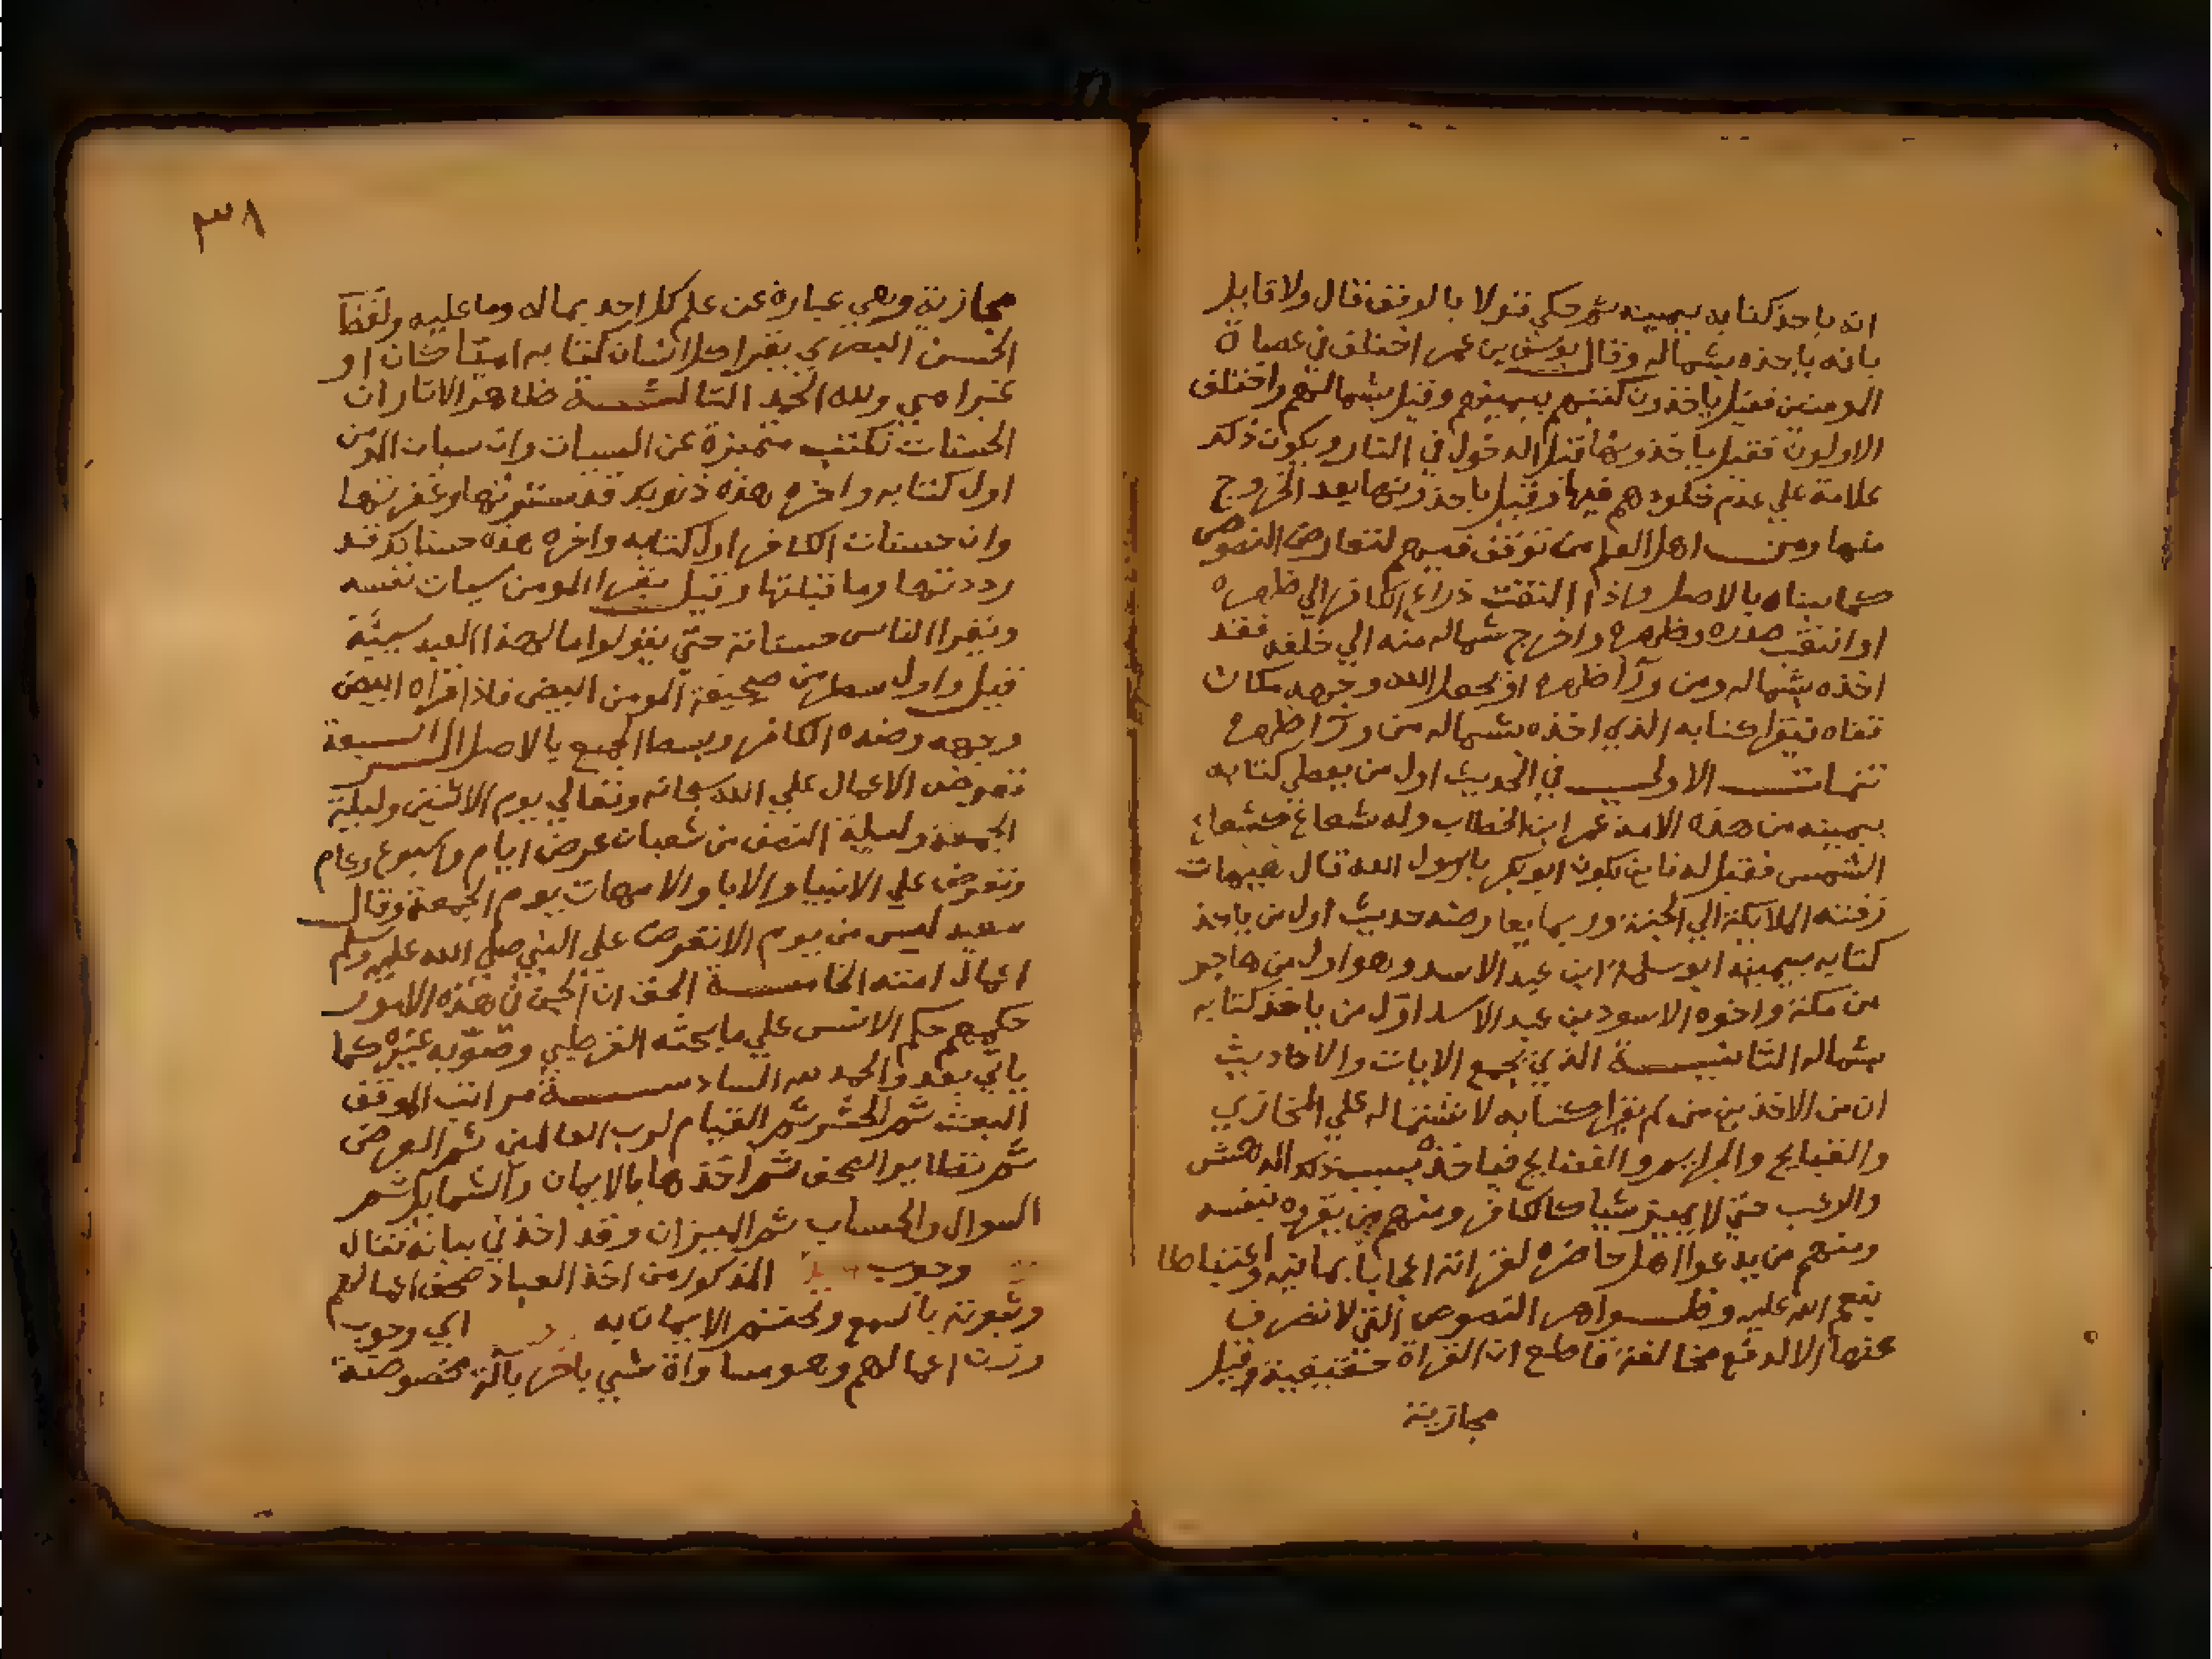 انه ياخذ كتابه بيمينه ثم حكي قولا بالوقف قال ولا قايل
بانه ياخذه بشماله وقال يوسف بن عمر اختلف في عصاة
المومنين فقيل ياخذون كتبهم بيمينهم وقيل بشمالهم واختلف
الاولون فقيل ياخذونها قبل الدخول في النار ويكون ذلك
علامة علي عدم خلودهم فيها وقيل ياخذونها بعد الخروج
منها ومن اهل العلم من توقف فيهم لتعارض النصوص
كما بيناه بالاصل واذا التفت ذراع الكافر الي ظهره
او انتقب صدره وظهره واخرج شماله منه الي خلفه فقد
اخذه بشماله ومن ورآ ظهره او يجعل الله وجهه مكان
قفاه فيقرا كتابه الذي اخذه بشماله من ورآ ظهره
تتمات الاولي في الحديث اول من يعطي كتابه
بيمينه من هذه الامة عمر ابن الخطاب وله شعاع كشعاع
الشمس فقيل له فاين يكون ابو بكر يا رسول الله قال هيهات
زفته الملايكة الي الجنة وربما يعارضه حديث اول من ياخذ
كتابه بيمينه ابو سلمة ابن عبد الاسد وهو اول من هاجر
من مكة واخوه الاسود بن عبد الاسد اول من ياخذ كتابه
بشماله الثانيـة الذي يجمع الايات والاحاديث
ان من الاخذين من لم يقرا كتابه لاشتماله علي المخازي
والقبايح والجرايم والفضايح فياخذه بسبب ذلك الدهش
والرعب حتي لا يميز شيا كالكافر ومنهم من يقروه بنفسه
ومنهم من يدعوا اهل حاضره لقراته اعجابا بما فيه واغتباطا
بنعم الله عليه وظـواهر النصوص التي لا تصرف
عنها الا لدفع مخالفة قاطع ان القراة حقيقية وقيل
مجازية
٣٨
مجازية وهي عبارة عن علم كل احد بماله وما عليه ولفظ
الحسن البصري يقرا كل انسان كتابه اميّا كان او
غير امي ولله الحمد الثالثـة ظاهر الاثار ان
الحسنات تكتب متميزة عن السيات وان سيات المومن
اول كتابه واخره هذه ذنوبك قد سترتها وغفرتها
وان حسنات الكافر اول كتابه واخره هذه حسناتك قد
رددتها وما قبلتها وقيل يقرا المومن سيات نفسه
ويقرا الناس حسناته حتي يقولوا ما لهذا العبد سيئة
قيل واول سطر من صحيفة المومن ابيض فاذا قراه ابيض
وجهه وضده الكافر وبسط الجميع بالاصل الرابعة
تعرض الاعمال علي الله سبحانه وتعالي يوم الاثنين وليلة
الجمعة وليلة النصف من شعبان عرض ايام واسبوع وعام
وتعرض علي الانبيا والابا والامهات يوم الجمعة وقال
سعيد ليس من يوم الا تعرض علي النبي صلي الله عليه وسلم
اعمال امته الخامسـة الحق ان الجن في هذه الامور
حكمهم حكم الانس علي ما بحثه القرطبي وصوّبه غيره كما
ياتي بعد والحمد لله السادسـة مراتب الموقف
البعث ثم الحشر ثم القيام لرب العالمين ثم العرض
ثم تطاير الصحف ثم اخذها بالايمان والشمايل ثم
السوال والحساب ثم الميزان وقد اخذ في بيانه فقال
وجوب المذكور من اخذ العباد صحف اعمالهم
وثبوته بالسمع وتحتم الايمان به اي وجوب
وزن اعمالهم وهو مساواة شي باخر بآلة مخصوصة